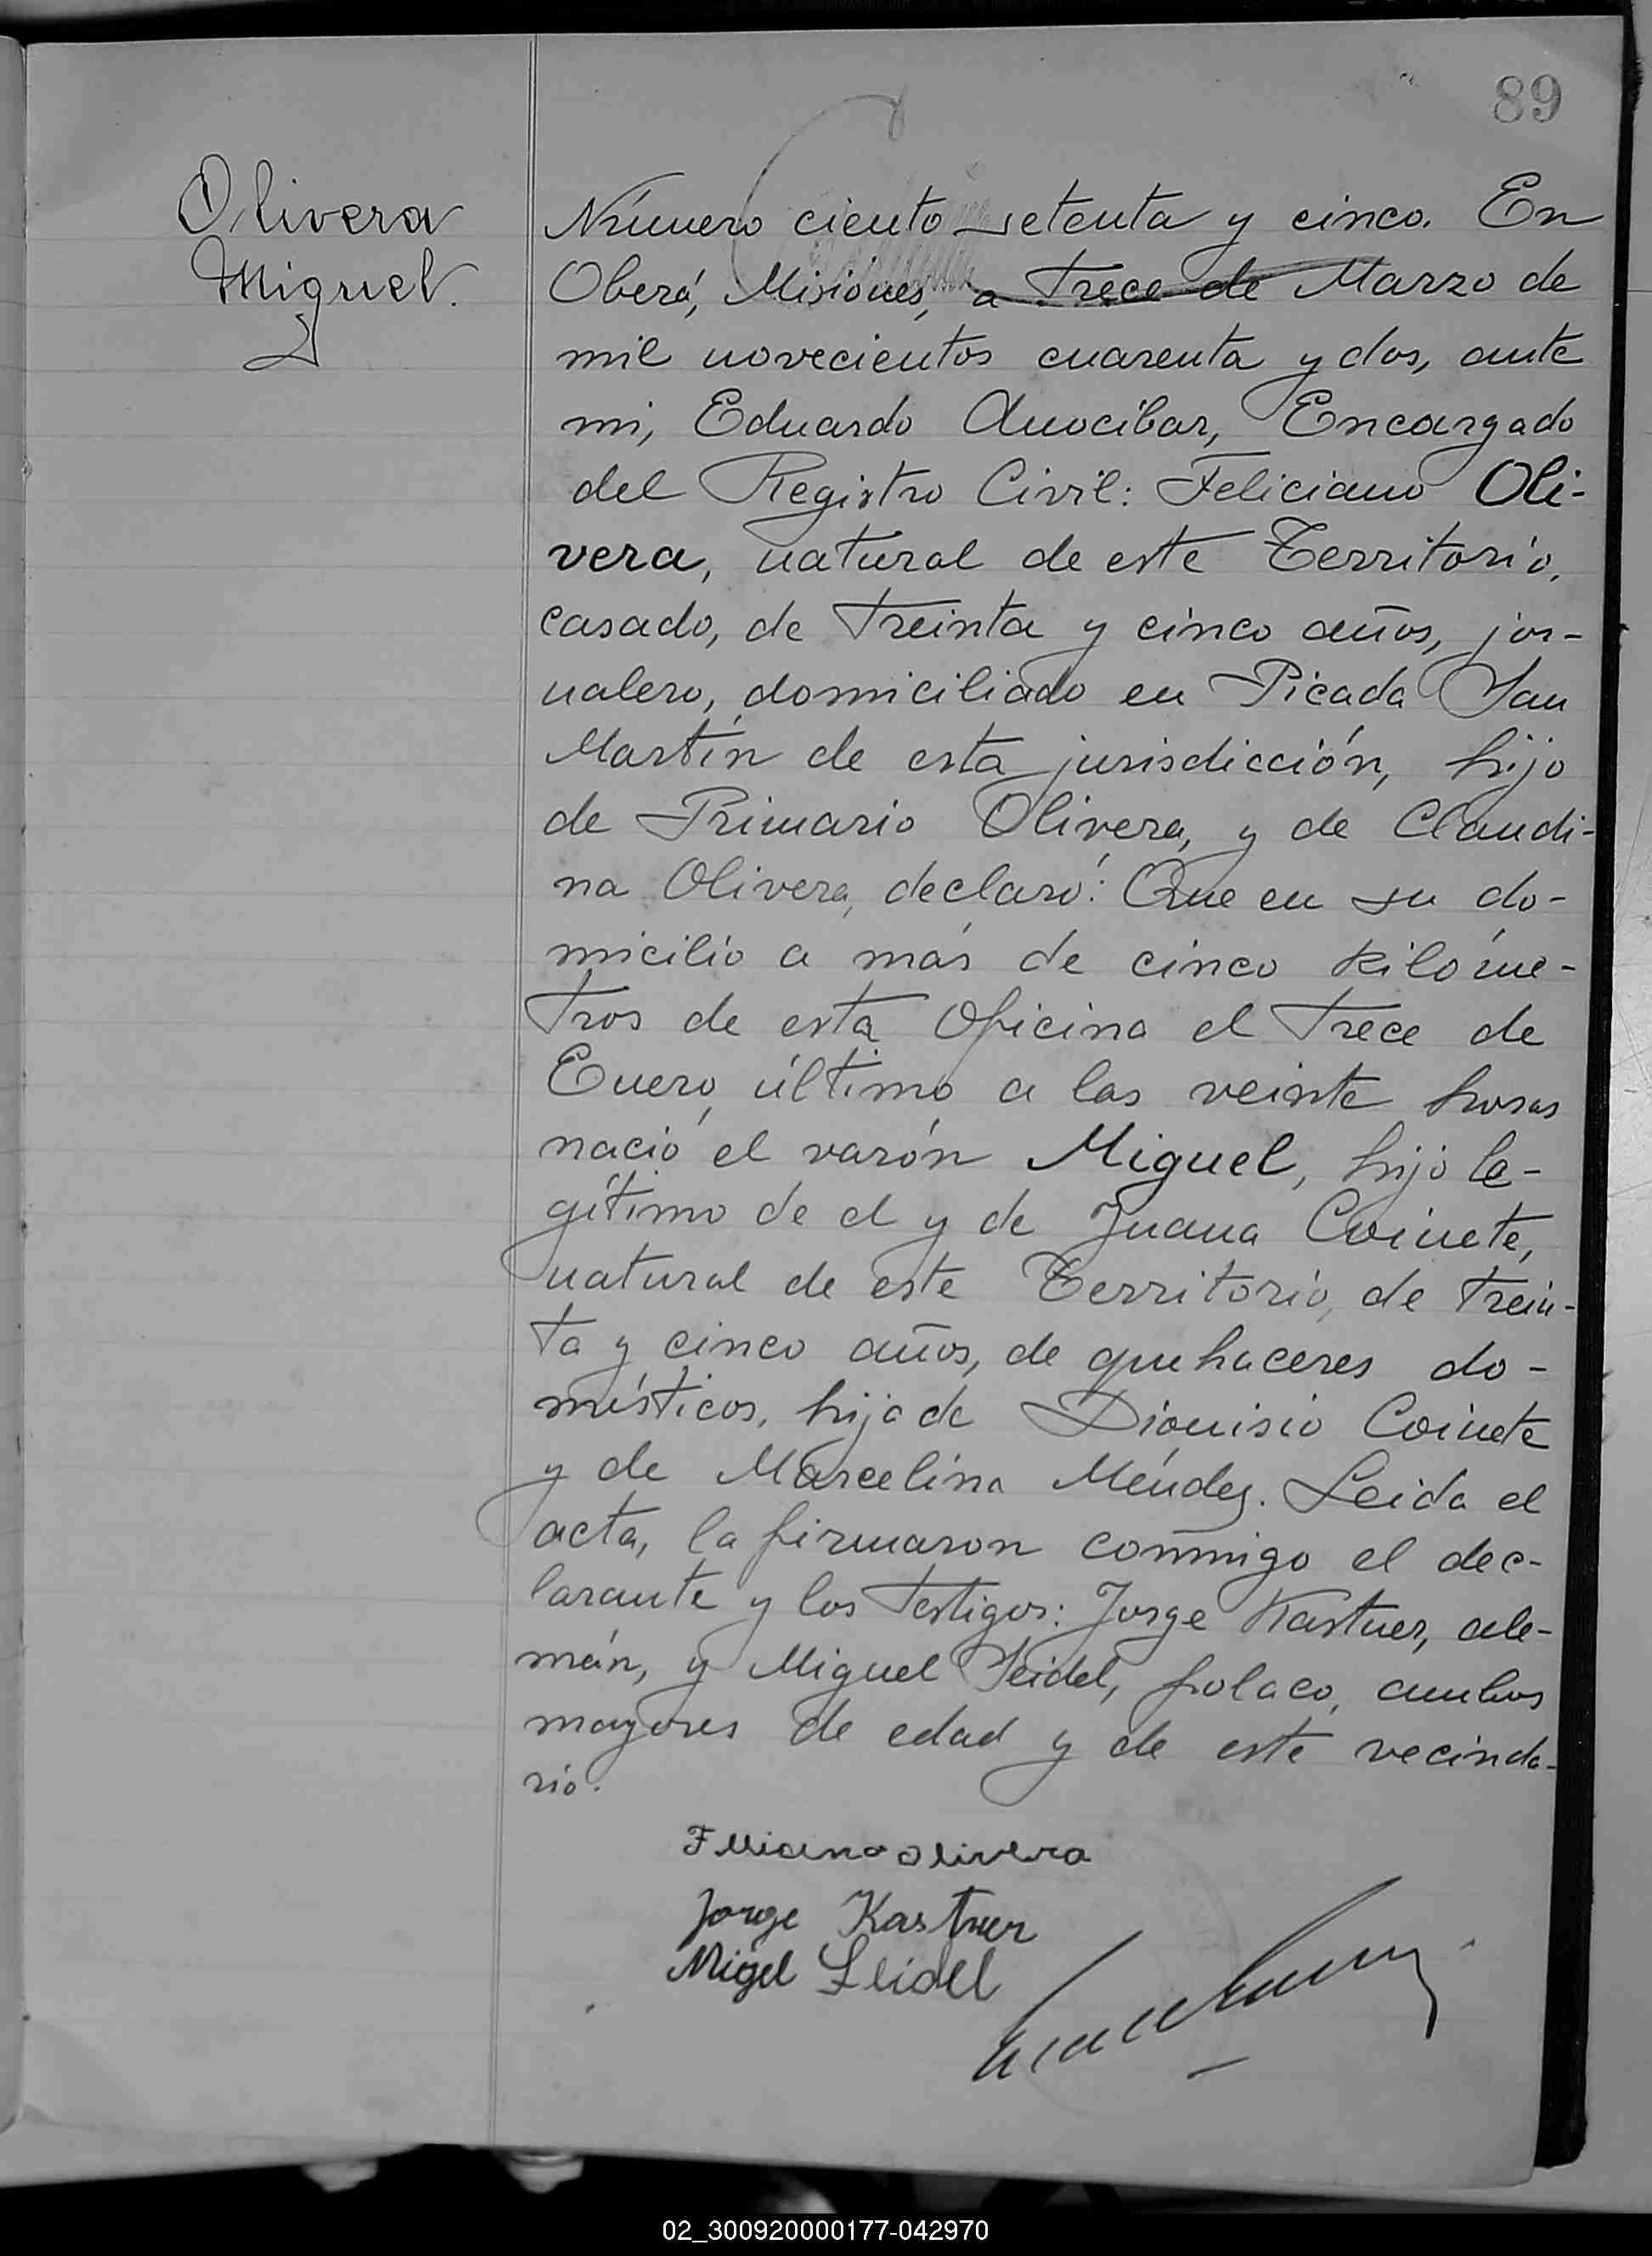 89
Olivera
Miguel.
Número ciento setenta y cinco. En
Oberá, Misiones, a trece de Marzo de
mil novecientos cuarenta y dos, ante
mi, Eduardo Anocibar, Encargado
del Registro Civil: Feliciano Oli-
vera, natural de este Territorio,
casado, de treinta y cinco años, jor-
nalero, domiciliado en Picada San
Martín de esta jurisdicción, hijo
de Primario Olivera, y de Claudi-
na Olivera, declaró: Que en su do-
micilio a más de cinco kilóme-
tros de esta Oficina el trece de
Enero último a las veinte horas
nació el varón Miguel, hijo le-
gítimo de el y de Juana Coinete,
natural de este Territorio, de trein-
ta y cinco años, de quehaceres do-
mésticos, hija de Dionisio Coinete
y de Marcelina Méndez. Leida el
acta, la firmaron conmigo el dec-
larante y los testigos: Jorge Kastner, ale-
mán, y Miguel Seidel, polaco, ambos
mayores de edad y de este vecinda-
rio.
Feliciano Olivera
Jorge Kastner
Migel Seidel
02_300920000177-042970